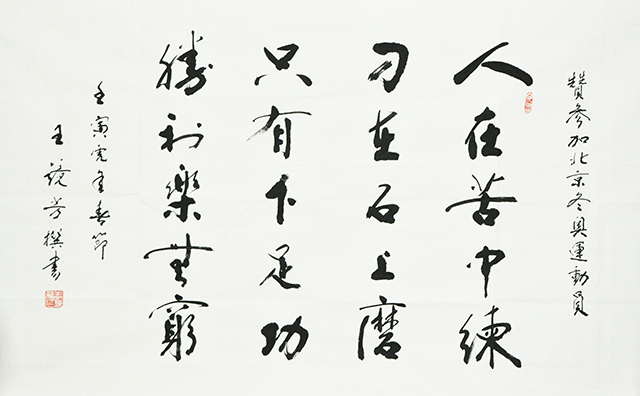 赞参加北京冬奥運動员
人在苦中練
刀在石上磨
只有下足功
勝利樂無窮
壬寅虎年春節
王鏡芳撰書